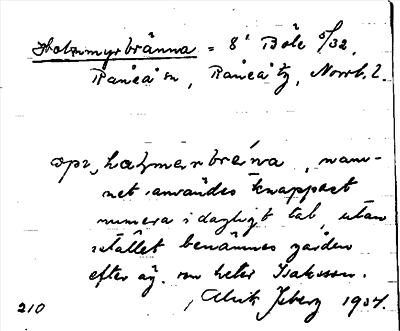 Holmmyrbränna = 8' Böle 5/32,
Råneå sn, Råneå tg, Norrb. l.
spr., hålmɐrbrɛ́na, nam-
net användes knappast
numera i dagligt tal, utan
i stället benämnes gården
efter äg. som heter Isaksson.
, Ulrik Isberg 1937.
210